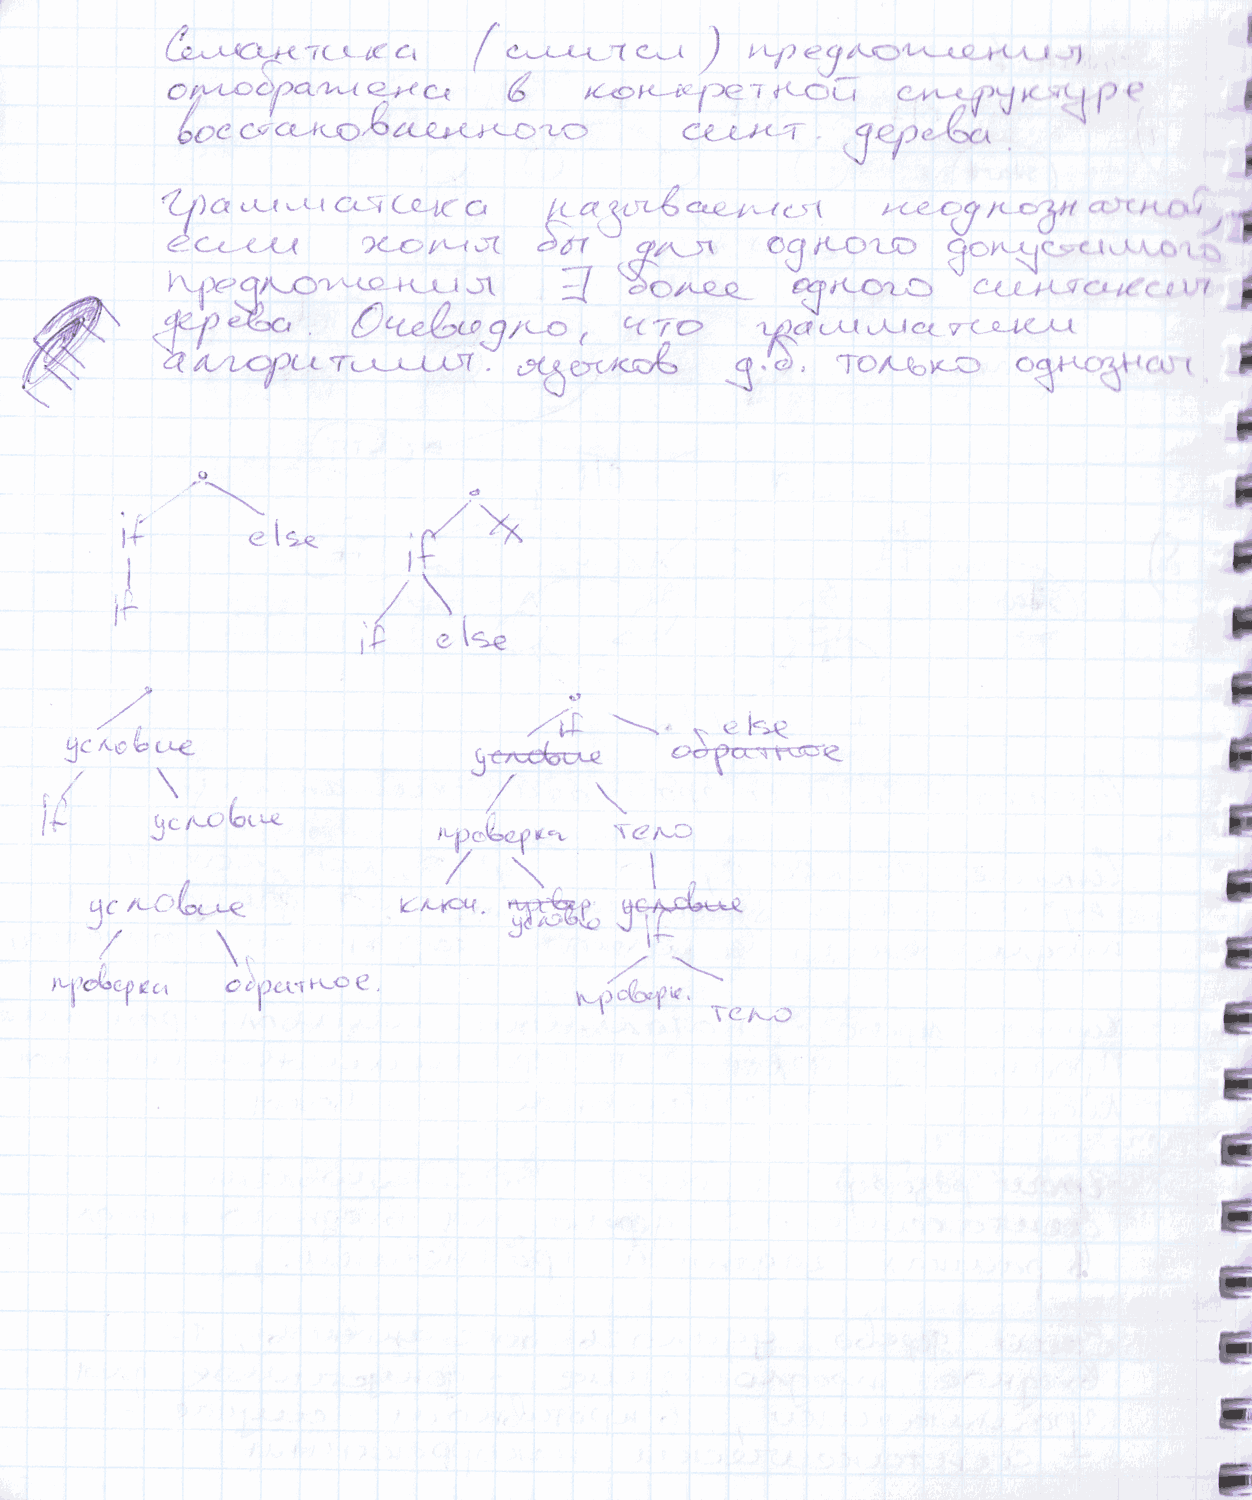 Семантика (смысл) предложения
отображена в конкретной структуре
восстановленного синт. дерева.
Грамматика называется неоднозначной,
если хотя бы для одного допустимого
предложения ∃ более одного синтаксич
дерева. Очевидно, что грамматики
алгоритмич. языков д.б. только однознач
if else
if
if
if else
условие
if else
условие обратное
if условие
проверка тело
условие
ключ. условие условие
if
проверка обратное.
проверк. тело